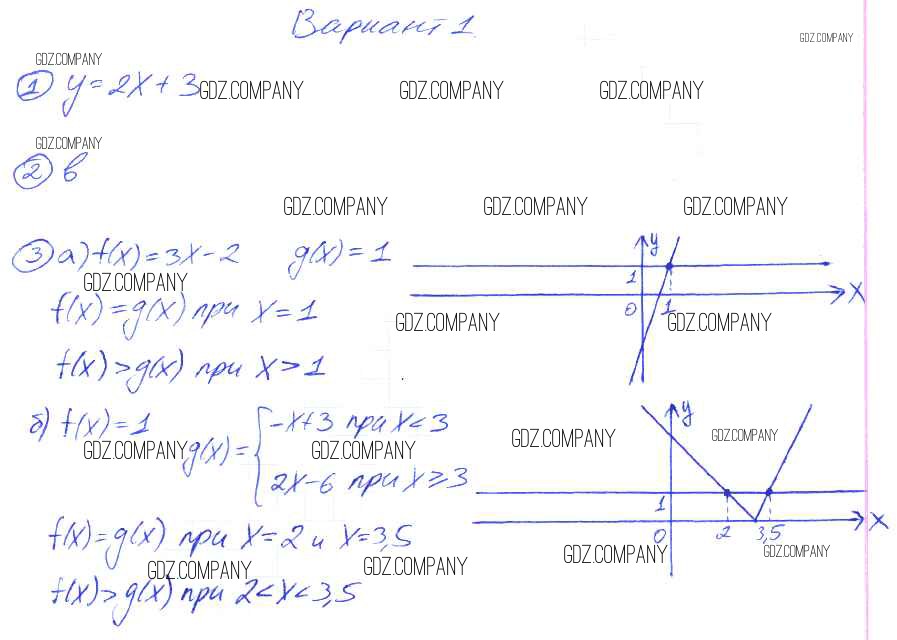 Вариант 1
GDZ.COMPANY
GDZ.COMPANY
① y = 2x + 3 GDZ.COMPANY GDZ.COMPANY GDZ.COMPANY
GDZ.COMPANY
② в
GDZ.COMPANY GDZ.COMPANY GDZ.COMPANY
③ а) f(x) = 3x - 2 g(x) = 1
GDZ.COMPANY
f(x) = g(x) при x = 1
GDZ.COMPANY GDZ.COMPANY
f(x) > g(x) при x > 1
y
1
x
0 1
б) f(x) = 1 g(x) = { -x + 3 при x < 3
2x - 6 при x ≥ 3
GDZ.COMPANY GDZ.COMPANY GDZ.COMPANY GDZ.COMPANY
y
1
x
0 2 3,5
f(x) = g(x) при x = 2 и x = 3,5
GDZ.COMPANY GDZ.COMPANY GDZ.COMPANY GDZ.COMPANY
f(x) > g(x) при 2 < x < 3,5